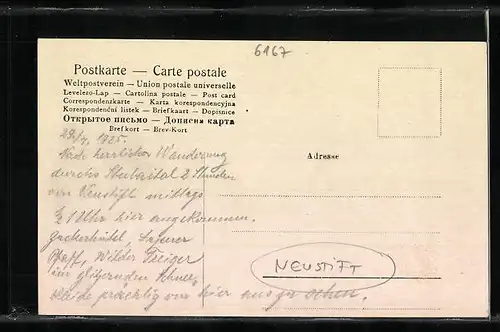 6167
Postkarte — Carte postale
Weltpostverein — Union postale universelle
Levelezo-Lap — Cartolina postale — Post card
Correspondenzkarte — Karta korespondencyjna
Korespondenční listek — Briefkaart — Dopisnice
Открытое письмо — Дописна карта
Brefkort — Brev-Kort
Adresse
1925.
Nach herrlicher Wanderung
durchs Stubaital 2 Stunden
von Neustift mittags
½ 1 Uhr hier angekommen.
Zuckerhütel,
Pfaff, Wilder Freiger
im glitzernden Schnee,
prächtig von hier aus zu sehen.
NEUSTIFT